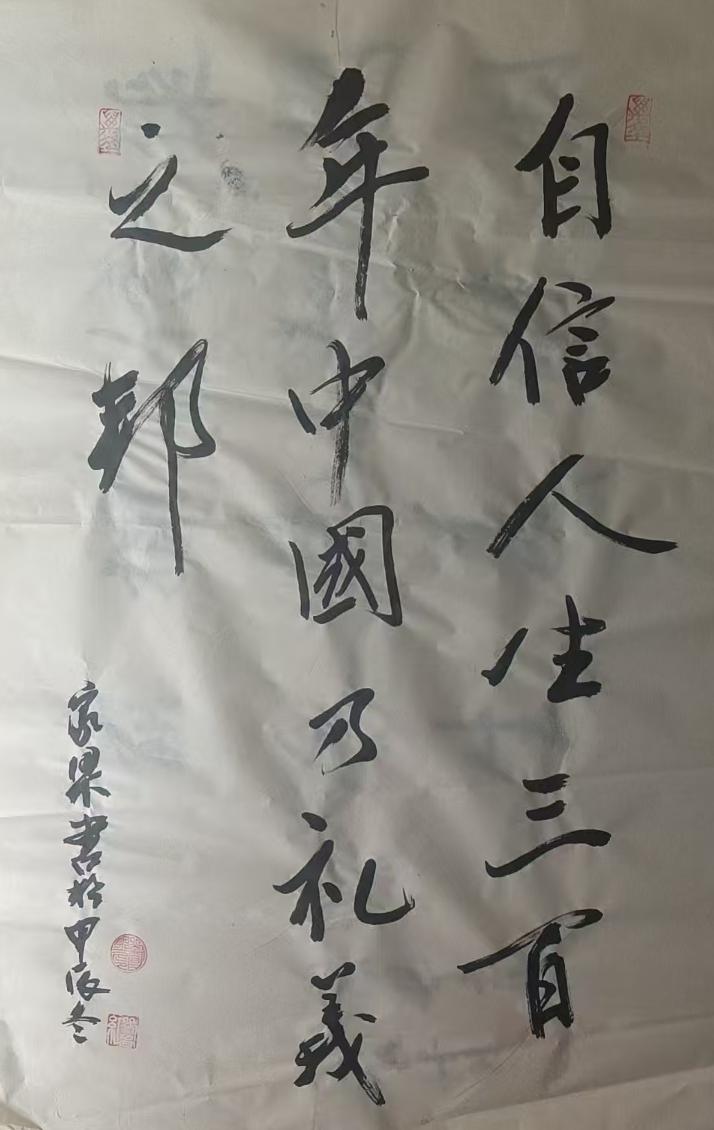 自信人生三百
年中國乃礼義
之邦
家果書於甲辰冬